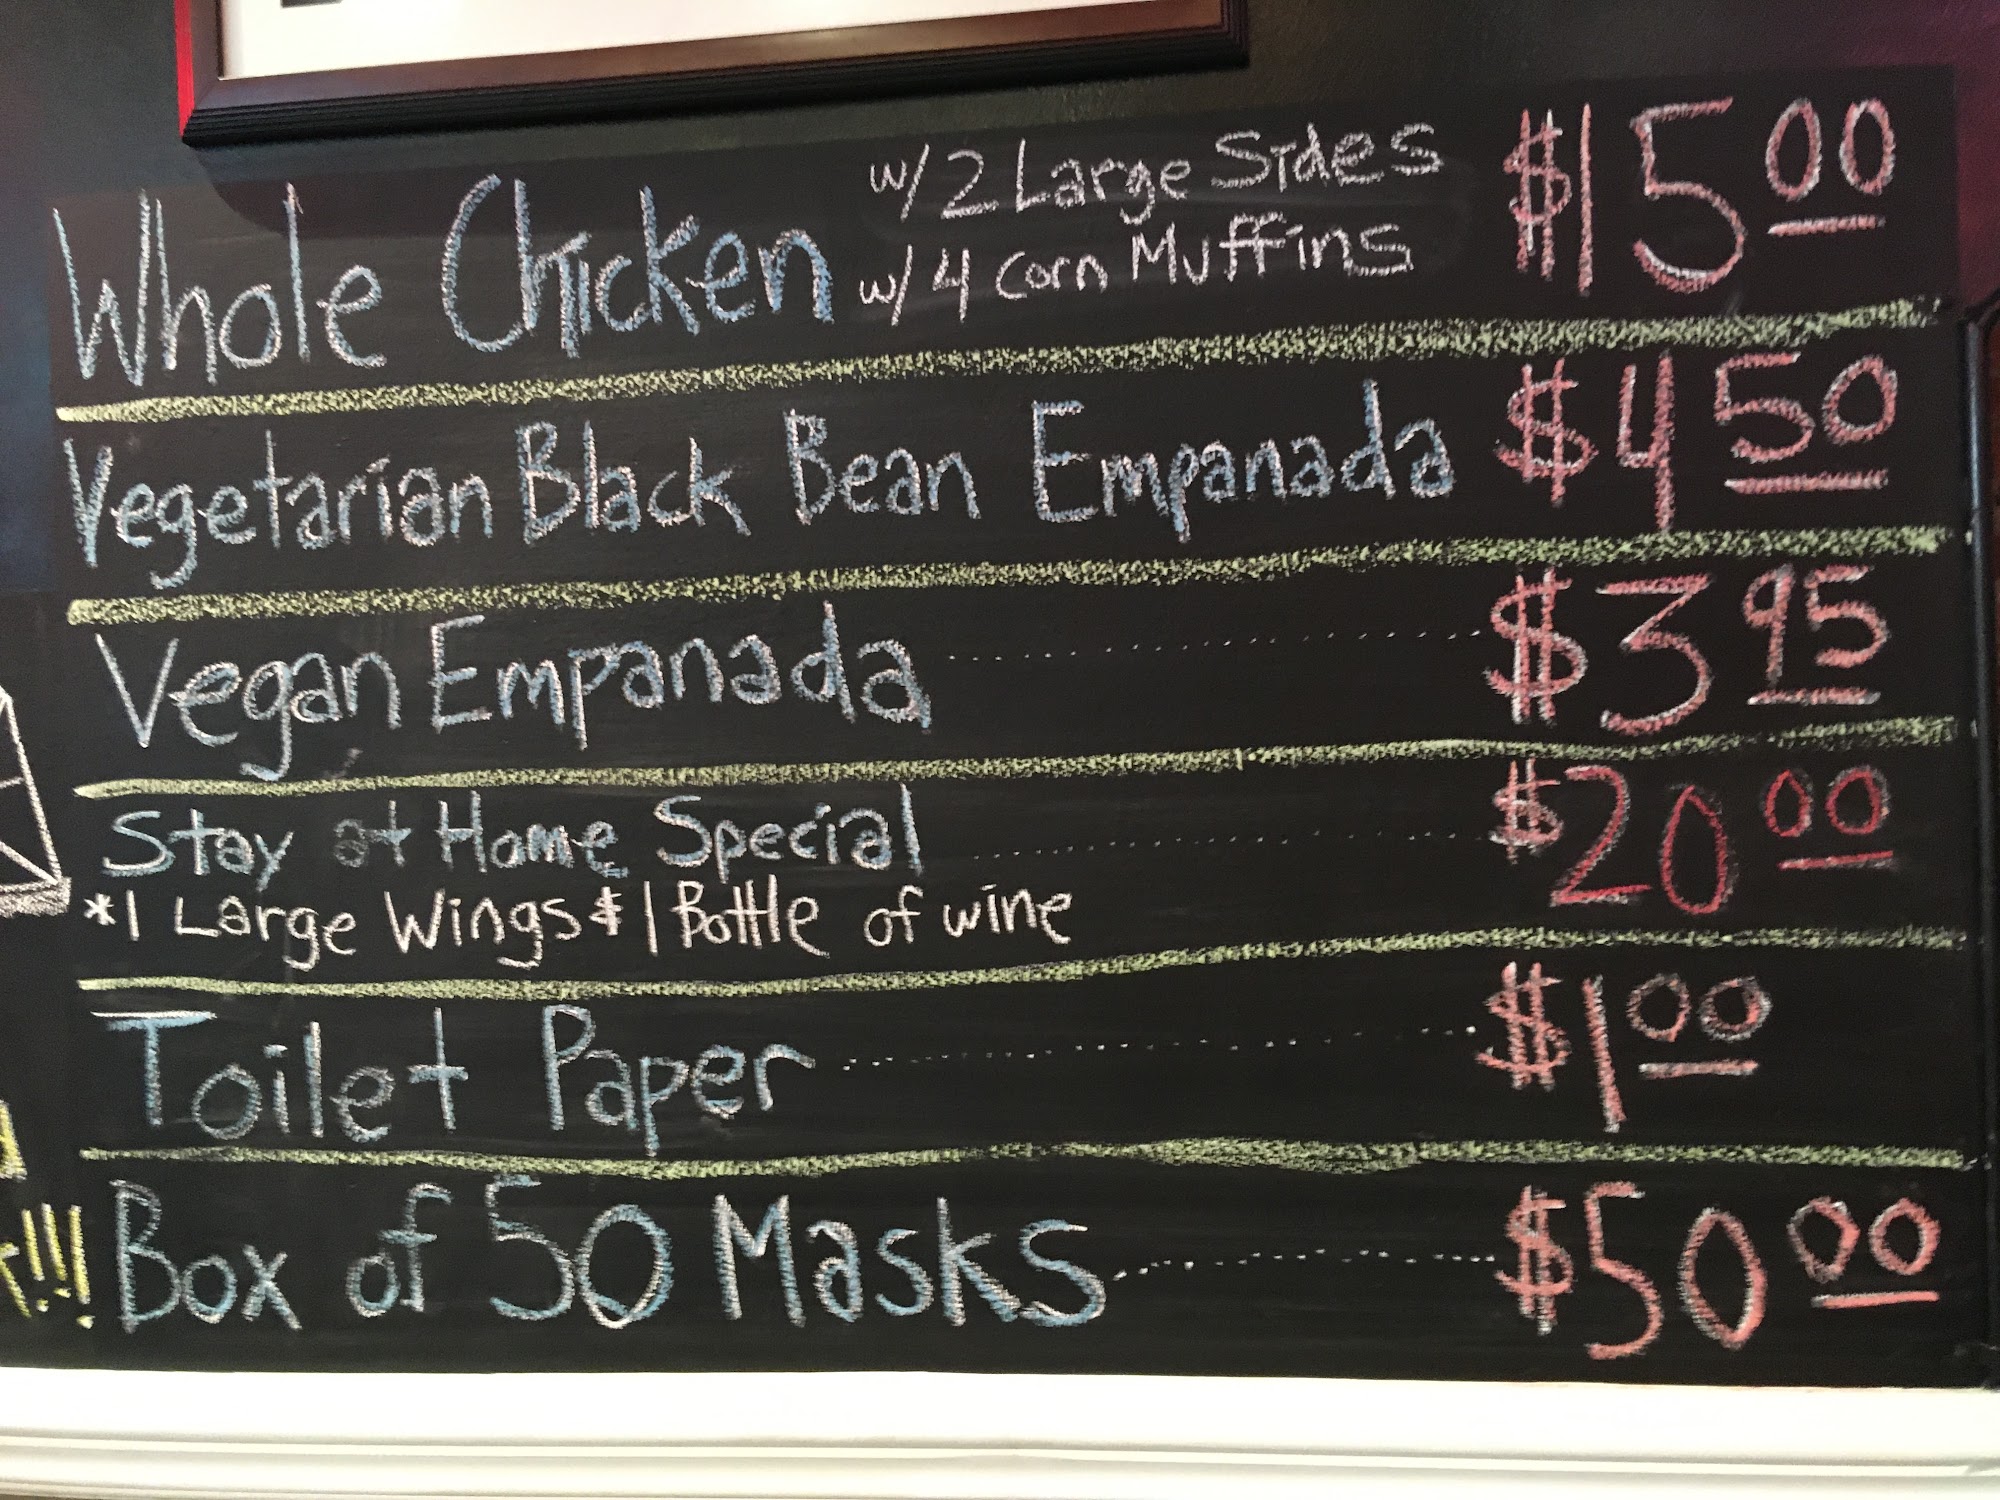 Whole Chicken w/ 2 Large Sides $15 00
w/ 4 Corn Muffins
Vegetarian Black Bean Empanada $4 50
Vegan Empanada .................... $3 95
Stay at Home Special .................... $20 00
*1 Large Wings & 1 Bottle of wine
Toilet Paper .................... $1 00
!!!
Box of 50 Masks .................... $50 00